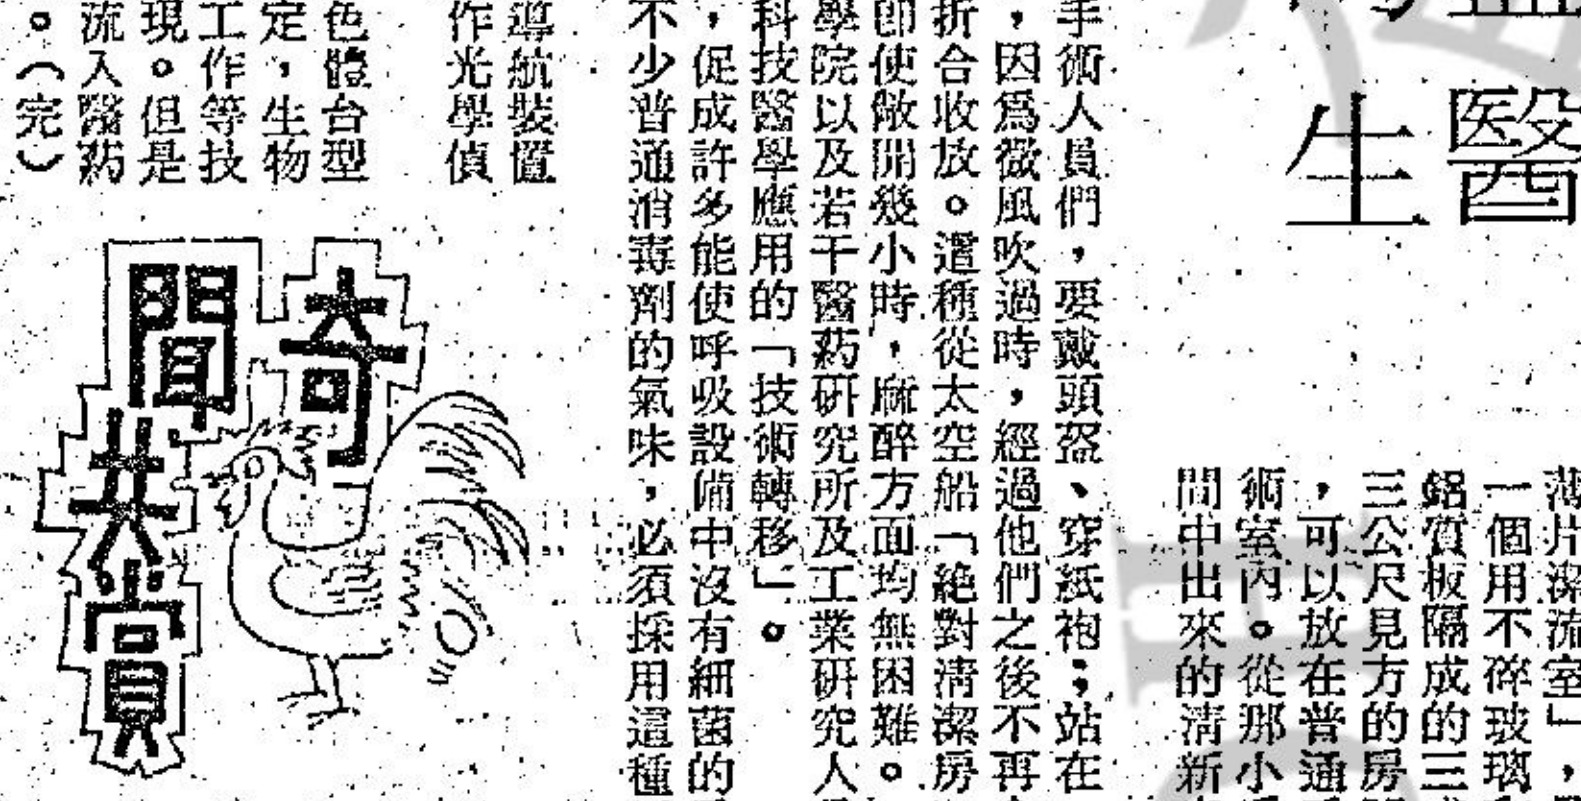 醫
生
薄片潔流室」，
一個用不碎玻璃
鋁質板隔成的三
三公尺見方的房
，可以放在普通
術室內。從那小
間中出來的清新
手術人員們，要戴頭盔、穿紙袍；站在
，因為微風吹過時，經過他們之後不再
折合收放。這種從太空船「絕對清潔房
即使敞開幾小時，麻醉方面均無困難。
學院以及若干醫葯研究所及工業研究人
科技醫學應用的「技術轉移」。
，促成許多能使呼吸設備中沒有細菌的
不少普通消毒劑的氣味，必須採用這種
導航裝置
作光學偵
色體台型
定，生物
工作等技
現。但是
流入醫葯
。（完）
奇聞共賞